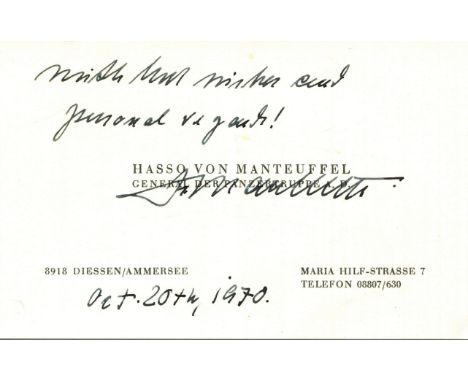 with best wishes and
personal regards!
HASSO VON MANTEUFFEL
GENERAL DER PANZERTRUPPE A. D.
8918 DIESSEN/AMMERSEE
MARIA HILF-STRASSE 7
TELEFON 08807/630
Oct. 20th, 1970.